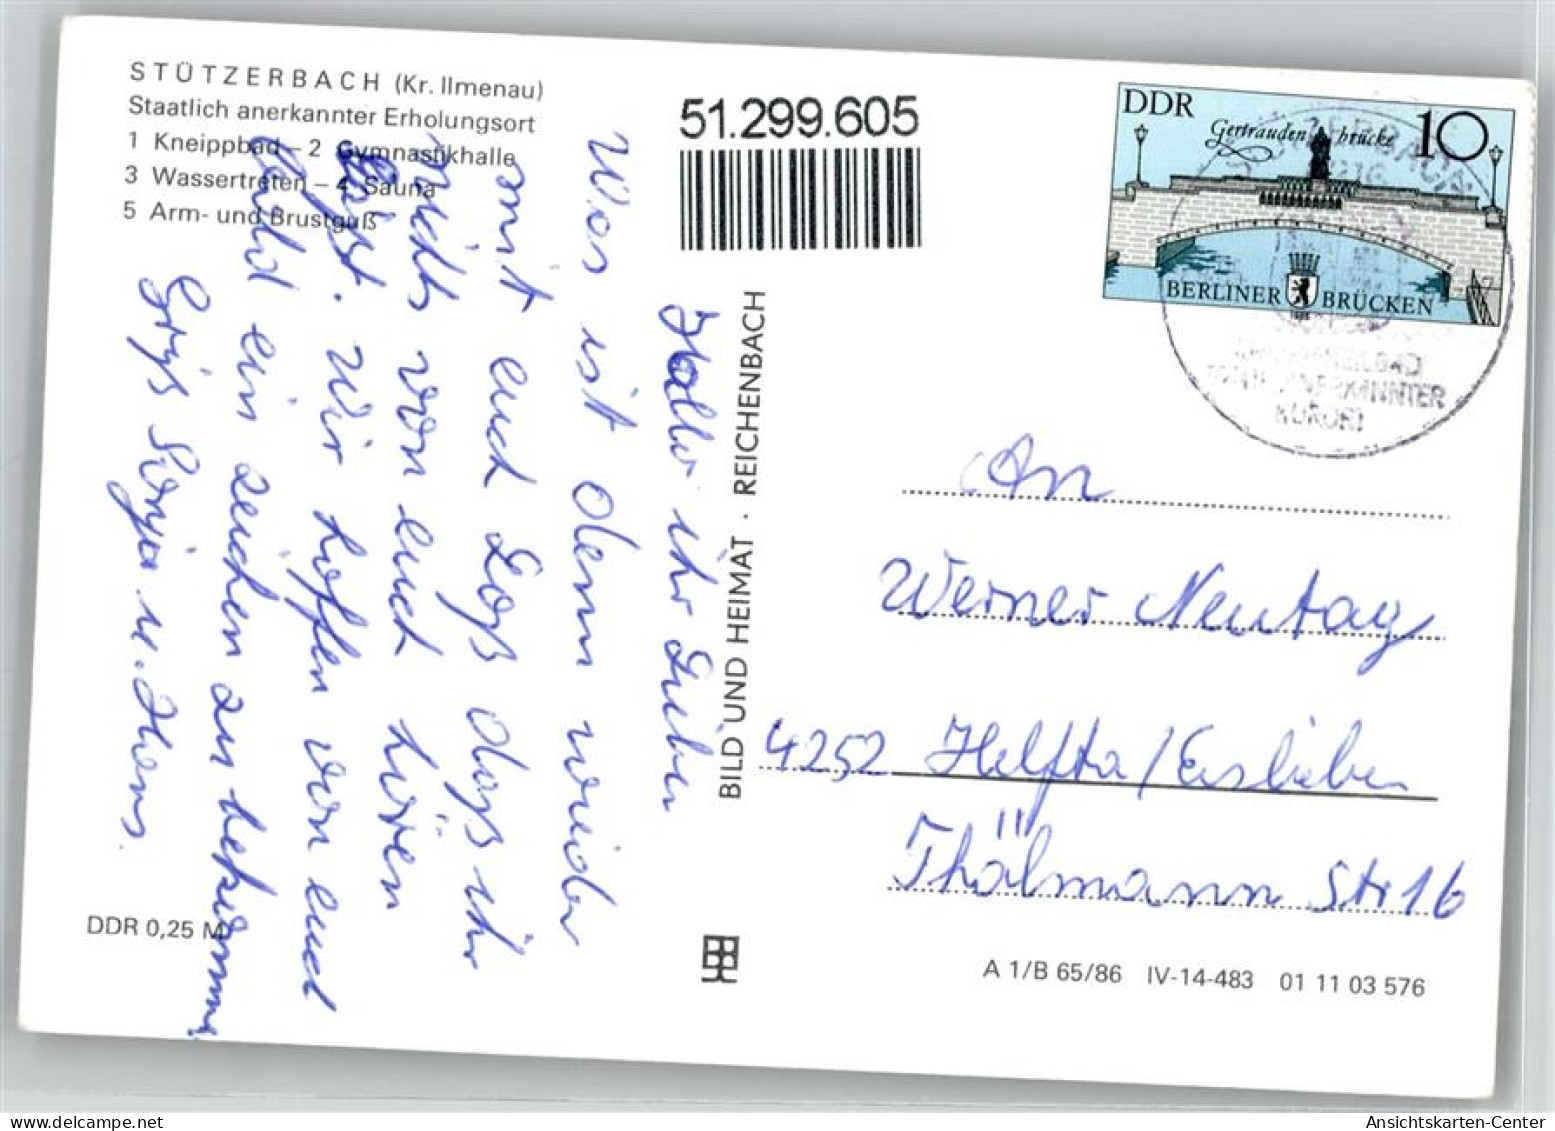 STÜTZERBACH (Kr. Ilmenau)
Staatlich anerkannter Erholungsort
1 Kneippbad – 2 Gymnastikhalle
3 Wassertreten – 4 Sauna
5 Arm- und Brustguß
51.299.605
DDR 10
Gertraudenbrücke
BERLINER BRÜCKEN
KURORT
Hallo ihr Lieben
Was ist denn wieder
mit euch Loß daß ihr
nichts von euch hören
laßt. Wir hoffen von euch
bald ein zeichen zu bekommen
Grüß Sonja u. Hans.
BILD UND HEIMAT · REICHENBACH
An
Werner Neutag
4252 Helfta/Eisleben
Thälmann Str 16
DDR 0,25 M
A 1/B 65/86 IV-14-483 01 11 03 576
Ansichtskarten-Center